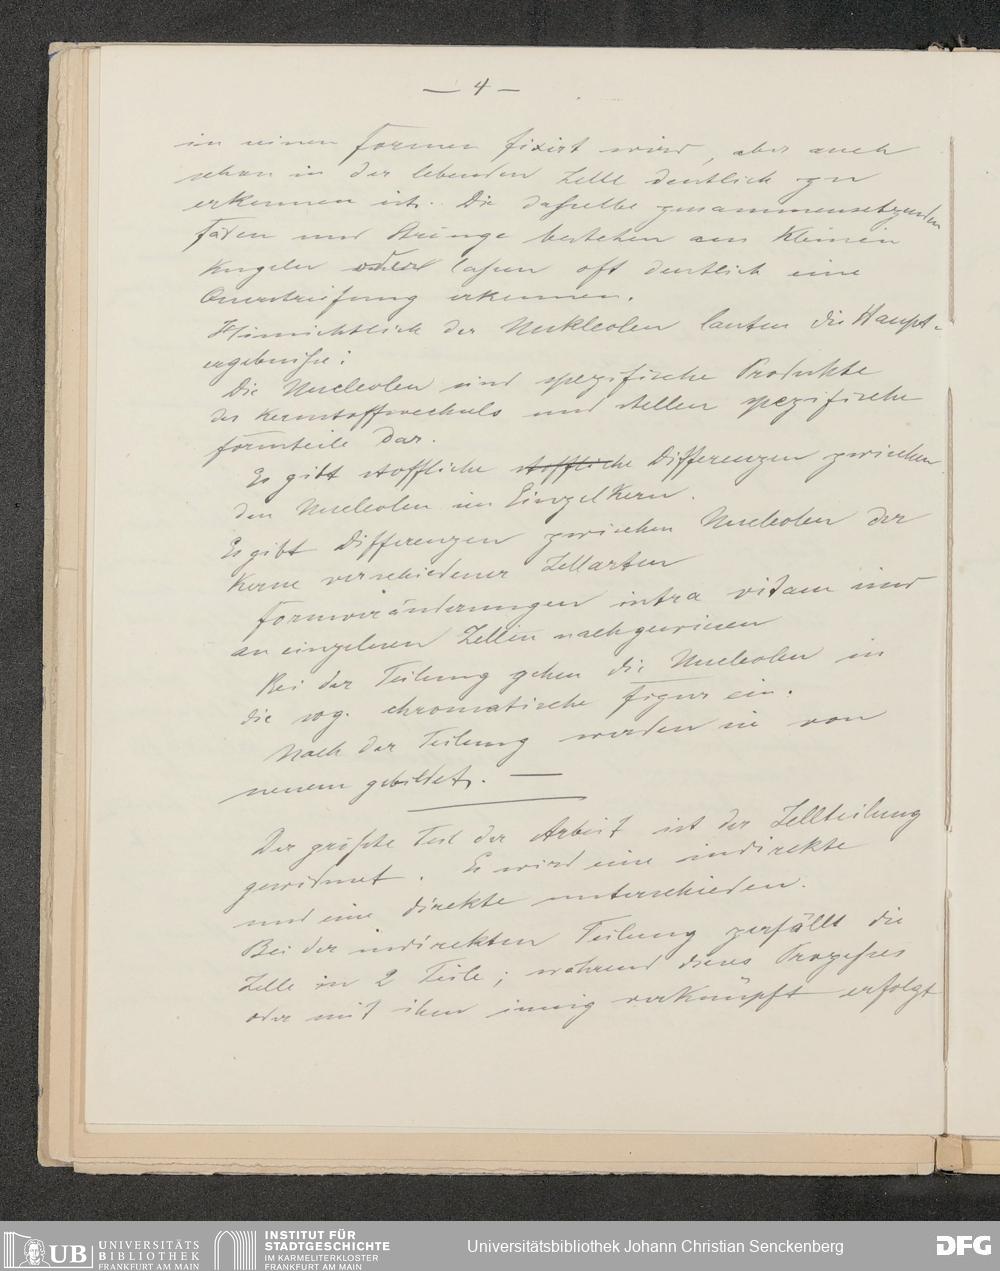 — 4 —
in seinen Formen fixirt wird, aber auch
schon in der lebenden Zelle deutlich zu
erkennen ist. Die dasselbe zusammensetzenden
Fäden und Stränge bestehen aus kleinen
Kugeln oder lassen oft deutlich eine
Querstreifung erkennen.
Hinsichtlich der Nukleolen lauten die Haupt-
ergebnisse:
Die Nucleolen sind spezifische Produkte
des Kernstoffwechsels und stellen spezifische
Formteile dar.
Es gibt stoffliche stoffliche Differenzen zwischen
den Nucleolen im Einzelkern.
Es gibt Differenzen zwischen Nucleolen der
Kerne verschiedener Zellarten
Formveränderungen intra vitam sind
an einzelnen Zellen nachgewiesen
Bei der Teilung gehen die Nucleolen in
die sog. chromatische Figur ein.
Nach der Teilung werden sie von
neuem gebildet. —
Der größte Teil der Arbeit ist der Zellteilung
gewidmet. Es wird eine indirekte
und eine direkte unterschieden.
Bei der indirekten Teilung zerfällt die
Zelle in 2 Teile; während dieses Prozesses
oder mit ihm innig verknüpft erfolgt
UB UNIVERSITÄTS
BIBLIOTHEK
FRANKFURT AM MAIN
INSTITUT FÜR
STADTGESCHICHTE
IM KARMELITERKLOSTER
FRANKFURT AM MAIN
Universitätsbibliothek Johann Christian Senckenberg
DFG